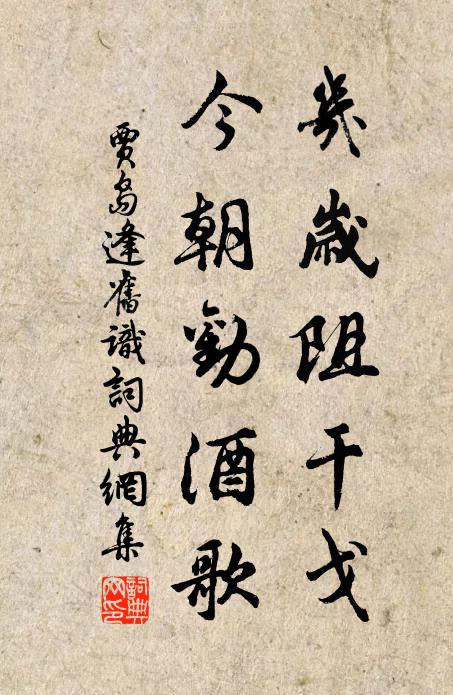 幾歲阻干戈
今朝勸酒歌
賈島逢舊識詞典網集
詞典网印